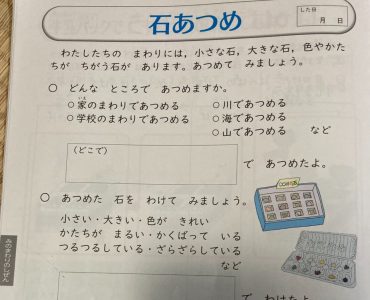 石あつめ
した日
月　日
わたしたちの　まわりには，小さな石，大きな石，色やかた
ちが　ちがう石が　あります。あつめて　みましょう。
○　どんな　ところで　あつめますか。
○家のまわりであつめる　○川であつめる
○学校のまわりであつめる　○海であつめる
○山であつめる　など
（どこで）
で　あつめたよ。
○　あつめた　石を　わけて　みましょう。
小さい・大きい・色が　きれい
かたちが　まるい・かくばって　いる
つるつるしている・ざらざらしている
など
みのまわりのしぜん
で　わけたよ